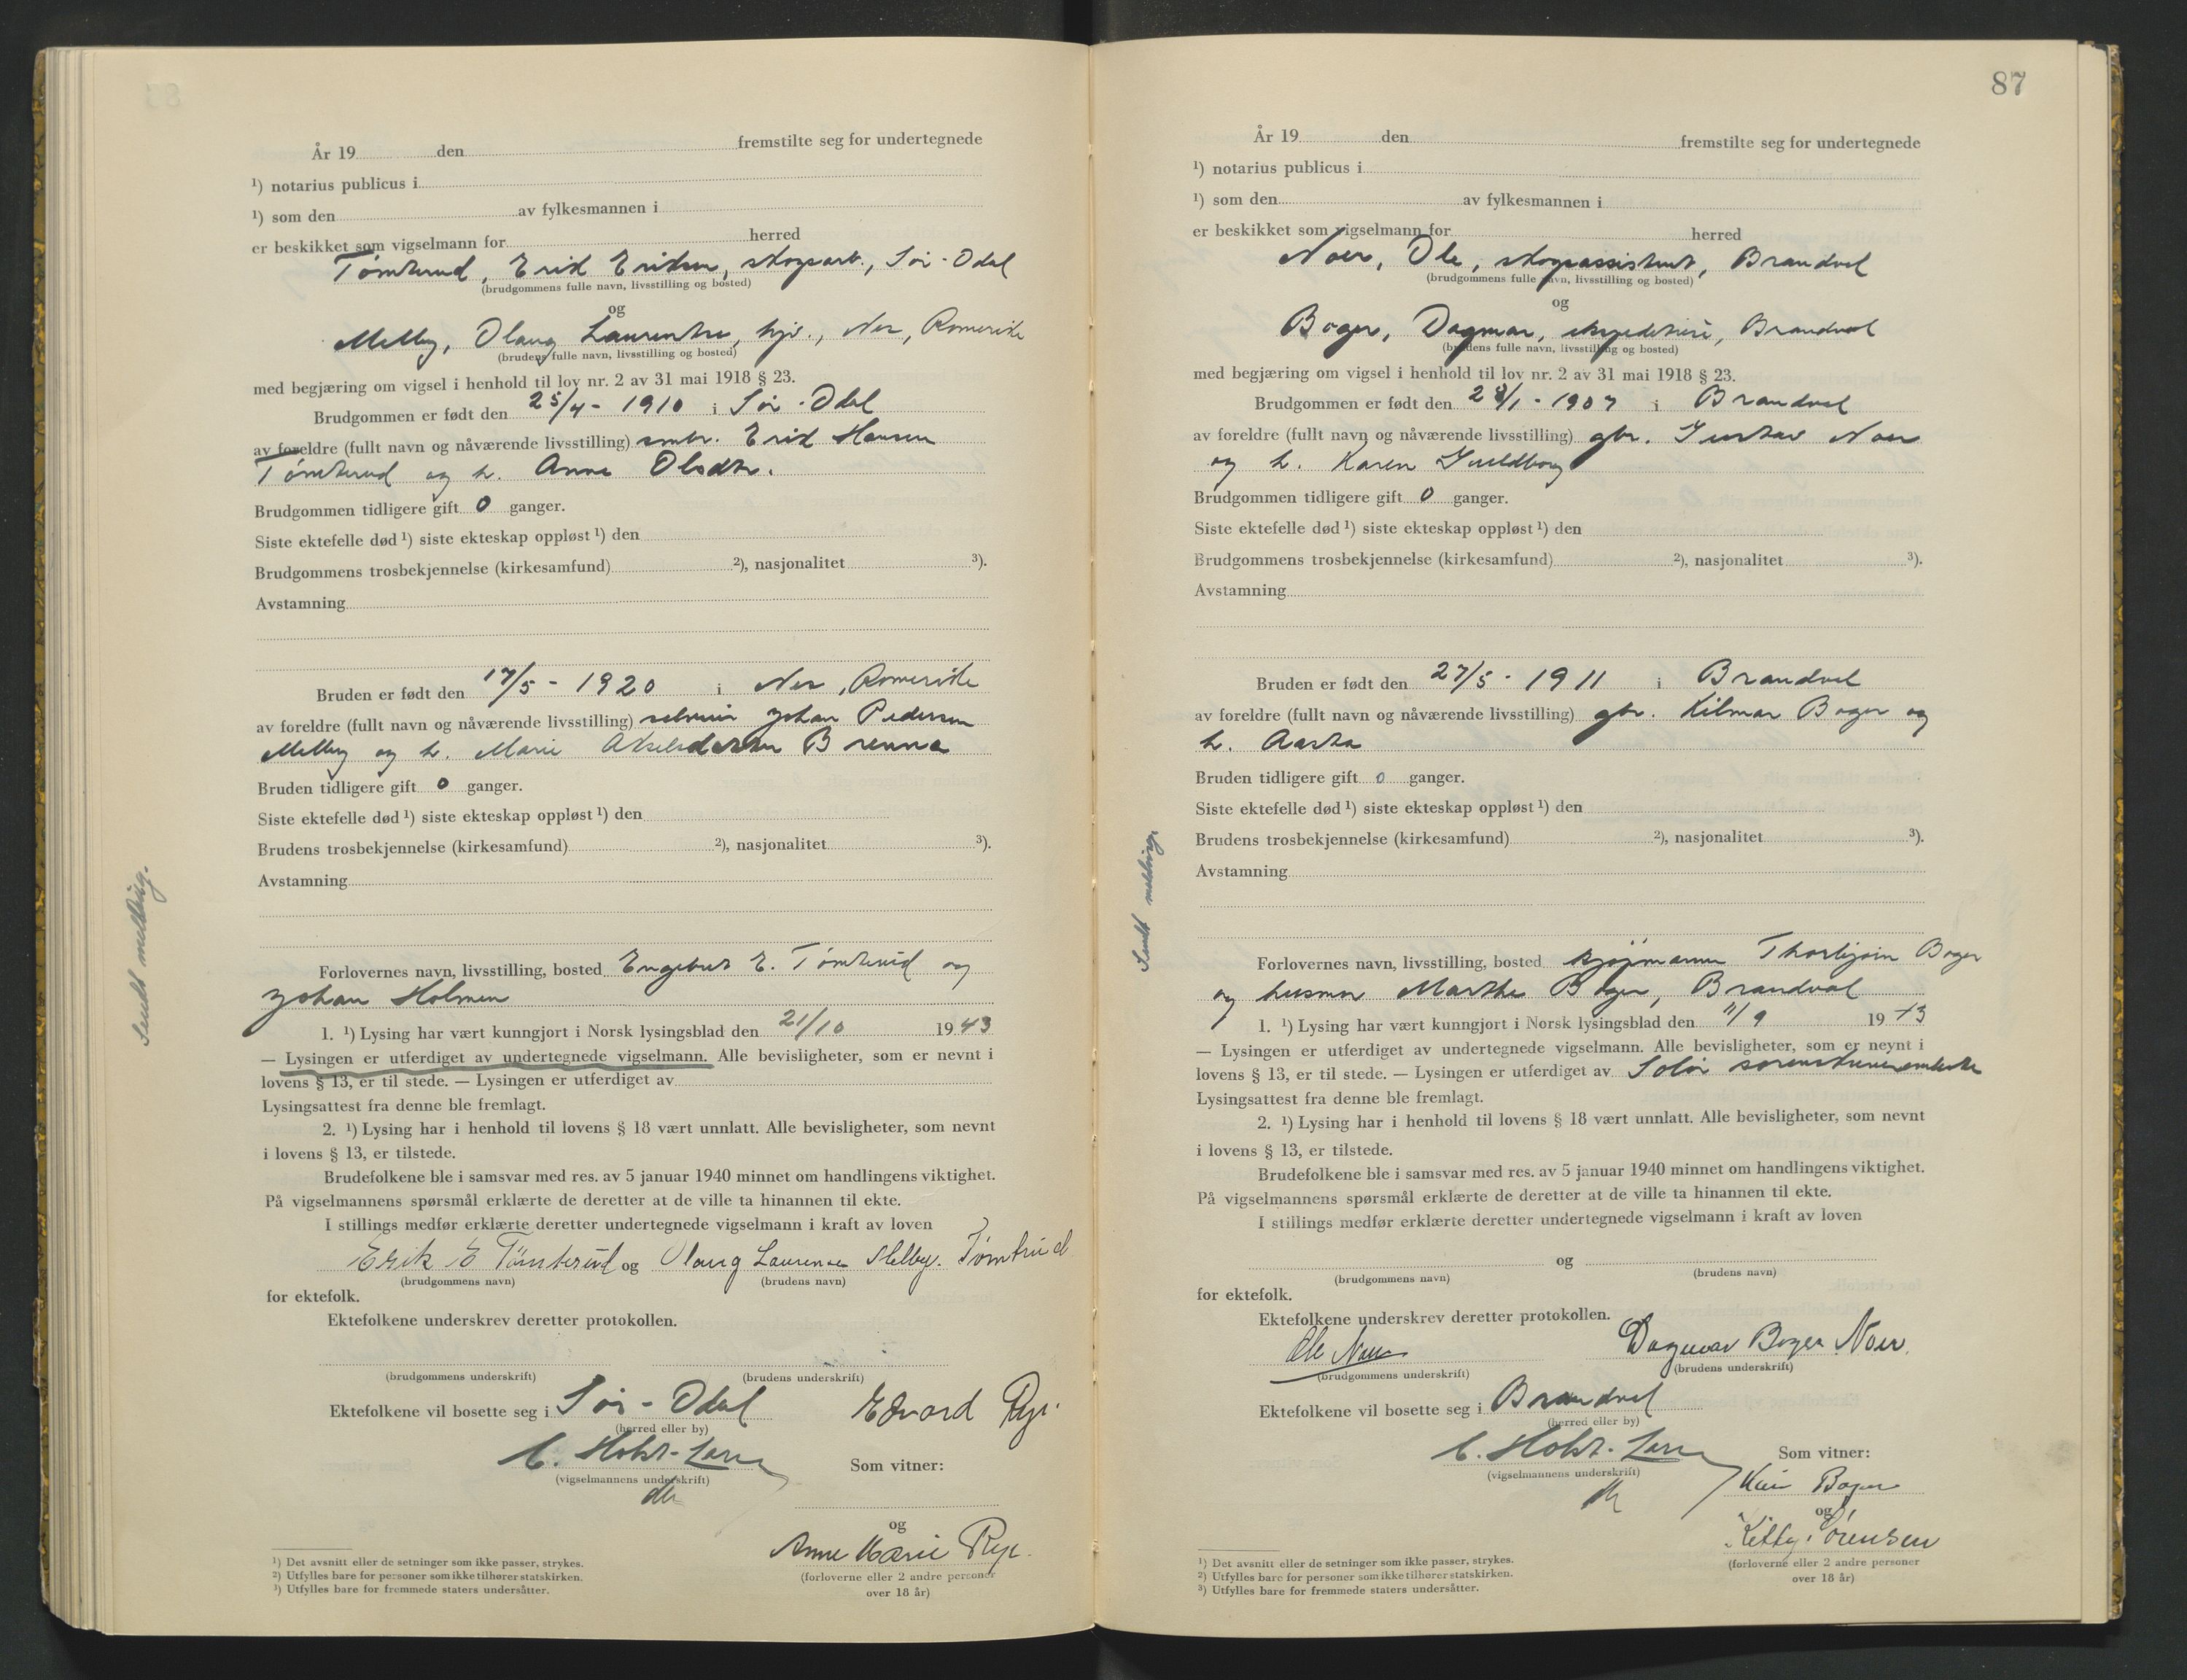 År 19 den fremstilte seg for undertegnede
¹) notarius publicus i
¹) som den av fylkesmannen i
er beskikket som vigselmann for herred
Tømterud, Erik Eriksen, skogsarb., Sør-Odal
(brudgommens fulle navn, livsstilling og bosted)
og
Melby, Olaug Laurentse, hjv., Nes, Romerike
(brudens fulle navn, livsstilling og bosted)
med begjæring om vigsel i henhold til lov nr. 2 av 31 mai 1918 § 23.
Brudgommen er født den 25/4 - 1910 i Sør-Odal
av foreldre (fullt navn og nåværende livsstilling) smbr. Erik Hansen
Tømterud og h. Anna Olsdtr.
Brudgommen tidligere gift 0 ganger.
Siste ektefelle død ¹) siste ekteskap oppløst ¹) den
Brudgommens trosbekjennelse (kirkesamfund) ²), nasjonalitet ³).
Avstamning
Bruden er født den 17/5 - 1920 i Nes, Romerike
av foreldre (fullt navn og nåværende livsstilling) Johan Pedersen
Melby og h. Marie Brenna
Bruden tidligere gift 0 ganger.
Siste ektefelle død ¹) siste ekteskap oppløst ¹) den
Brudens trosbekjennelse (kirkesamfund) ²), nasjonalitet ³).
Avstamning
Sendt melding.
Forlovernes navn, livsstilling, bosted Engebret E. Tømterud og
Johan Holmen
1. ¹) Lysing har vært kunngjort i Norsk lysingsblad den 21/10 1943
— Lysingen er utferdiget av undertegnede vigselmann. Alle bevisligheter, som er nevnt i
lovens § 13, er til stede. — Lysingen er utferdiget av
Lysingsattest fra denne ble fremlagt.
2. ¹) Lysing har i henhold til lovens § 18 vært unnlatt. Alle bevisligheter, som nevnt
i lovens § 13, er tilstede.
Brudefolkene ble i samsvar med res. av 5 januar 1940 minnet om handlingens viktighet.
På vigselmannens spørsmål erklærte de deretter at de ville ta hinannen til ekte.
I stillings medfør erklærte deretter undertegnede vigselmann i kraft av loven
Erik E Tømterud og Olaug Laurense Melby. Tømtrud
(brudgommens navn) (brudens navn)
for ektefolk.
Ektefolkene underskrev deretter protokollen.
(brudgommens underskrift) (brudens underskrift)
Ektefolkene vil bosette seg i Sør-Odal Edvard
(herred eller by)
C. Holst-Larsen Som vitner:
(vigselmannens underskrift)
og
Anne Marie
(forloverne eller 2 andre personer
over 18 år)
¹) Det avsnitt eller de setninger som ikke passer, strykes.
²) Utfylles bare for personer som ikke tilhører statskirken.
³) Utfylles bare for fremmede staters undersåtter.
87
År 19 den fremstilte seg for undertegnede
¹) notarius publicus i
¹) som den av fylkesmannen i
er beskikket som vigselmann for herred
Noer, Ole, skogsassistent, Brandval
(brudgommens fulle navn, livsstilling og bosted)
og
Boger, Dagmar, ekspeditrise, Brandval
(brudens fulle navn, livsstilling og bosted)
med begjæring om vigsel i henhold til lov nr. 2 av 31 mai 1918 § 23.
Brudgommen er født den 28/1 - 1907 i Brandval
av foreldre (fullt navn og nåværende livsstilling) gbr. Gustav Noer
og h. Karen Guldborg
Brudgommen tidligere gift 0 ganger.
Siste ektefelle død ¹) siste ekteskap oppløst ¹) den
Brudgommens trosbekjennelse (kirkesamfund) ²), nasjonalitet ³).
Avstamning
Bruden er født den 27/5 - 1911 i Brandval
av foreldre (fullt navn og nåværende livsstilling) gbr. Hilmar Boger og
h. Aasta
Bruden tidligere gift 0 ganger.
Siste ektefelle død ¹) siste ekteskap oppløst ¹) den
Brudens trosbekjennelse (kirkesamfund) ²), nasjonalitet ³).
Avstamning
Sendt melding
Forlovernes navn, livsstilling, bosted kjøpmann Thorbjørn Boger
og husmor Marthe Boger, Brandval
1. ¹) Lysing har vært kunngjort i Norsk lysingsblad den 11/9 1943
— Lysingen er utferdiget av undertegnede vigselmann. Alle bevisligheter, som er nevnt i
lovens § 13, er til stede. — Lysingen er utferdiget av Solør sorenskriverembete
Lysingsattest fra denne ble fremlagt.
2. ¹) Lysing har i henhold til lovens § 18 vært unnlatt. Alle bevisligheter, som nevnt
i lovens § 13, er tilstede.
Brudefolkene ble i samsvar med res. av 5 januar 1940 minnet om handlingens viktighet.
På vigselmannens spørsmål erklærte de deretter at de ville ta hinannen til ekte.
I stillings medfør erklærte deretter undertegnede vigselmann i kraft av loven
og
(brudgommens navn) (brudens navn)
for ektefolk.
Ektefolkene underskrev deretter protokollen.
Ole Noer Dagmar Boger Noer.
(brudgommens underskrift) (brudens underskrift)
Ektefolkene vil bosette seg i Brandval
(herred eller by)
C. Holst-Larsen Som vitner:
(vigselmannens underskrift)
Boger
og
Kitty Sørensen
(forloverne eller 2 andre personer
over 18 år)
¹) Det avsnitt eller de setninger som ikke passer, strykes.
²) Utfylles bare for personer som ikke tilhører statskirken.
³) Utfylles bare for fremmede staters undersåtter.